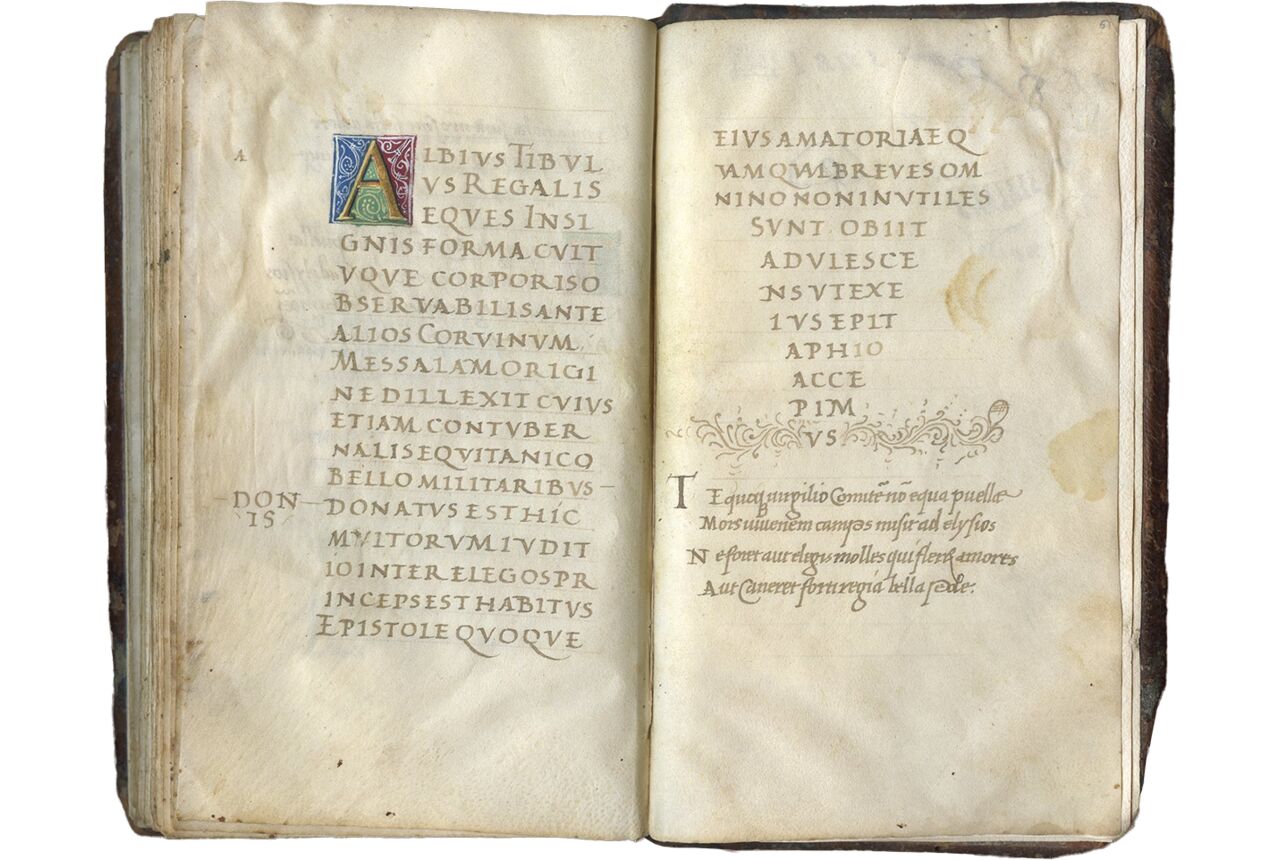 A
ALBIVS TIBVL
VS REGALIS
EQVES INSI
GNIS FORMA CVIT
VQVE CORPORIS O
BSERVABILIS ANTE
ALIOS CORVINVM
MESSALAM ORIGI
NE DILLEXIT CVIVS
ETIAM CONTVBER
NALIS EQVITANICO
BELLO MILITARIBVS
DON
IS
DONATVS EST HIC
MVLTORVM IVDIT
IO INTER ELEGOS PR
INCEPS EST HABITVS
EPISTOLE QVOQVE
EIVS AMATORIAE Q
VAMQVAL BREVES OM
NINO NON INVTILES
SVNT. OBIIT
ADVLESCE
NS VT EXE
IVS EPIT
APHIO
ACCE
PIM
VS
TE quoq virgilio Comitē nō equa puellæ
Mors iuvenem campos misit ad elysios
Ne foret aut elegis molles qui fleret amores
Aut Caneret forti regia bella pede: